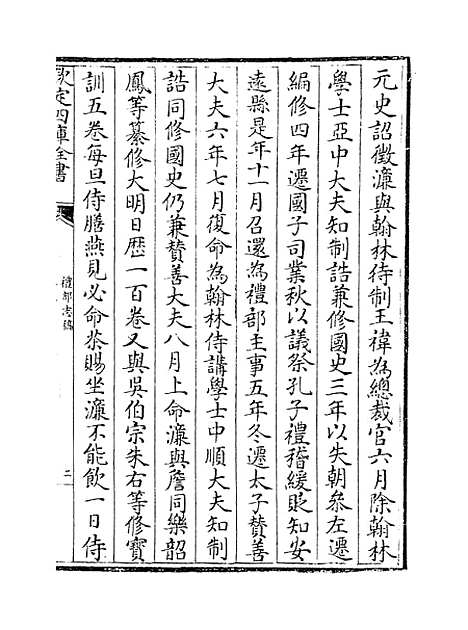 元史詔徵濂與翰林待制王褘為總裁官六月除翰林
學士亞中大夫知制誥兼修國史三年以失朝叅左遷
編修四年遷國子司業秋以議祭孔子禮稽緩貶知安
遠縣是年十一月召還為禮部主事五年冬遷太子贊善
大夫六年七月復命為翰林侍講學士中順大夫知制
誥同修國史仍兼贊善大夫八月上命濂與詹同樂韶
鳳等纂修大明日歷一百卷又與吳伯宗朱右等修寶
訓五卷每旦侍膳燕見必命茶賜坐濂不能飲一日侍
欽定四庫全書
禮部志稿
二